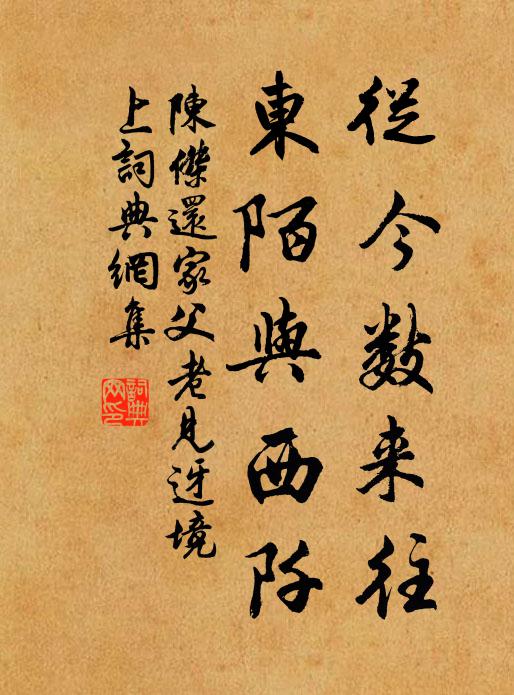 從今數来往
東陌與西阡
陳傑還家父老見迓境
上詞典網集
詞典
网印